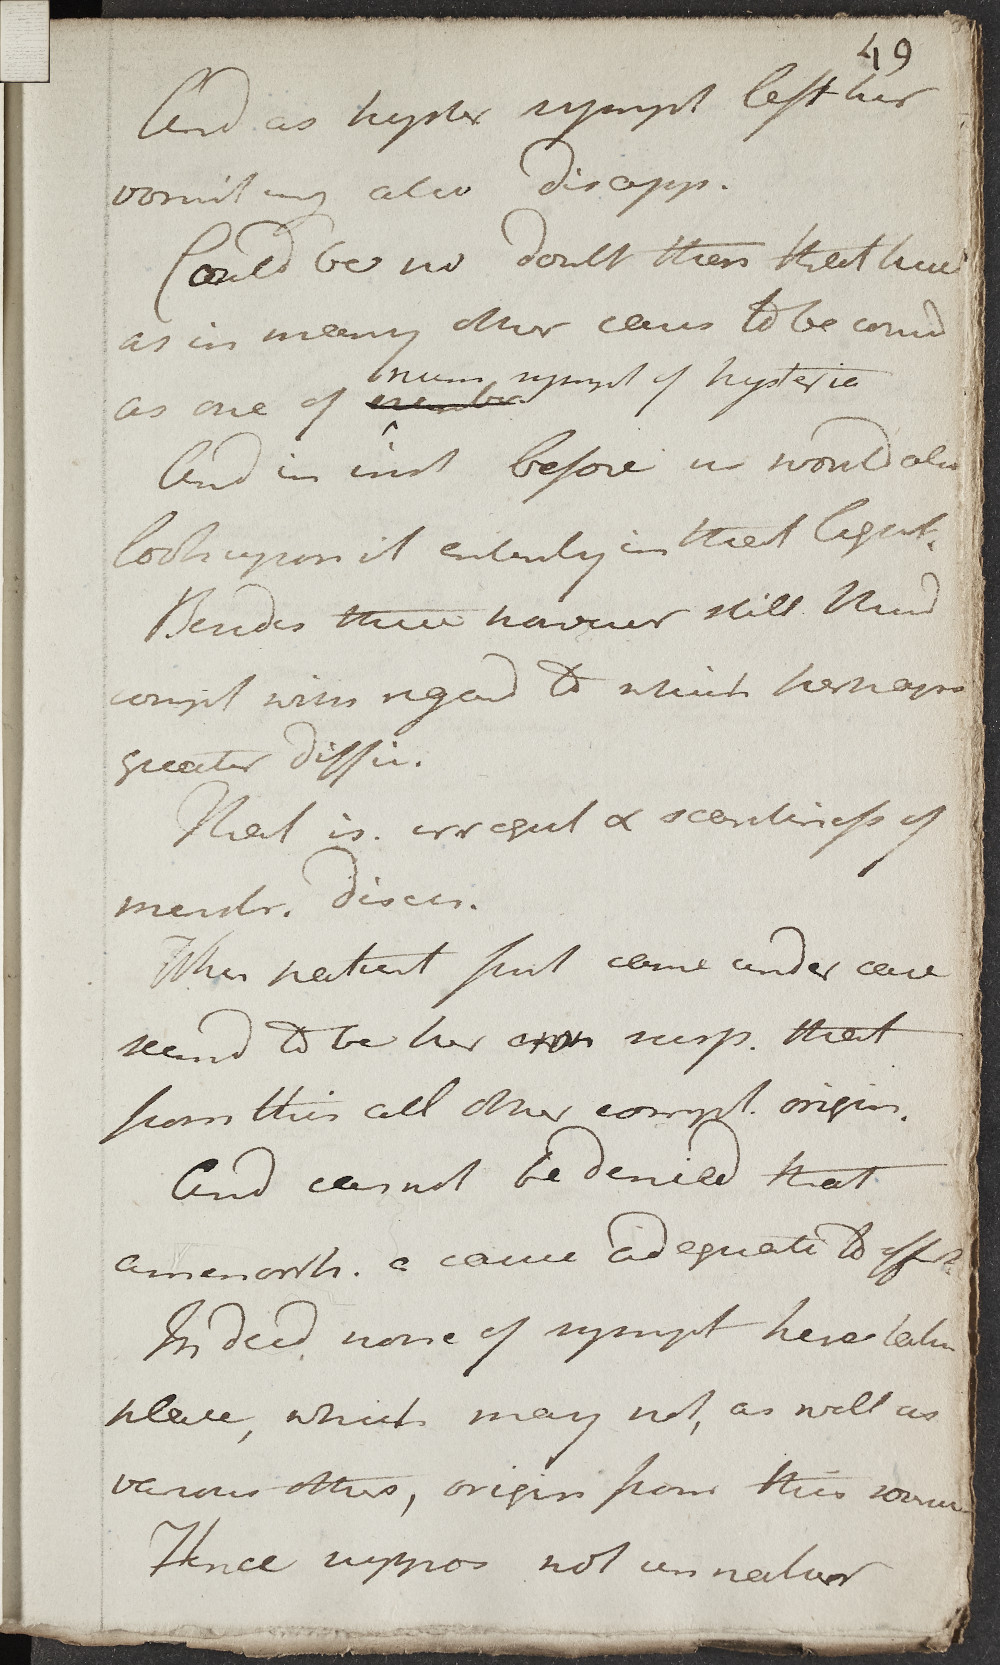 49
And as hyster sympt left her
vomiting also disapp.
Could be no doubt then that here
as in many other cases to be consid
num sympt of hysteria
as one of number
And in inst before us would also
look upon it entirely in that light.
Besides these however still third
compt with regard to which perhaps
greater diffic.
That is. irregul & scantiness of
menstr. discr.
When patient first came under care
seemd to be her own susp. that
from this all other compt. origin.
And cannot be denied that
amenorrh. a cause adequate to effect.
Indeed none of sympt here taken
place, which may not, as well as
various others, origin from this source
Hence suppos not unnatur